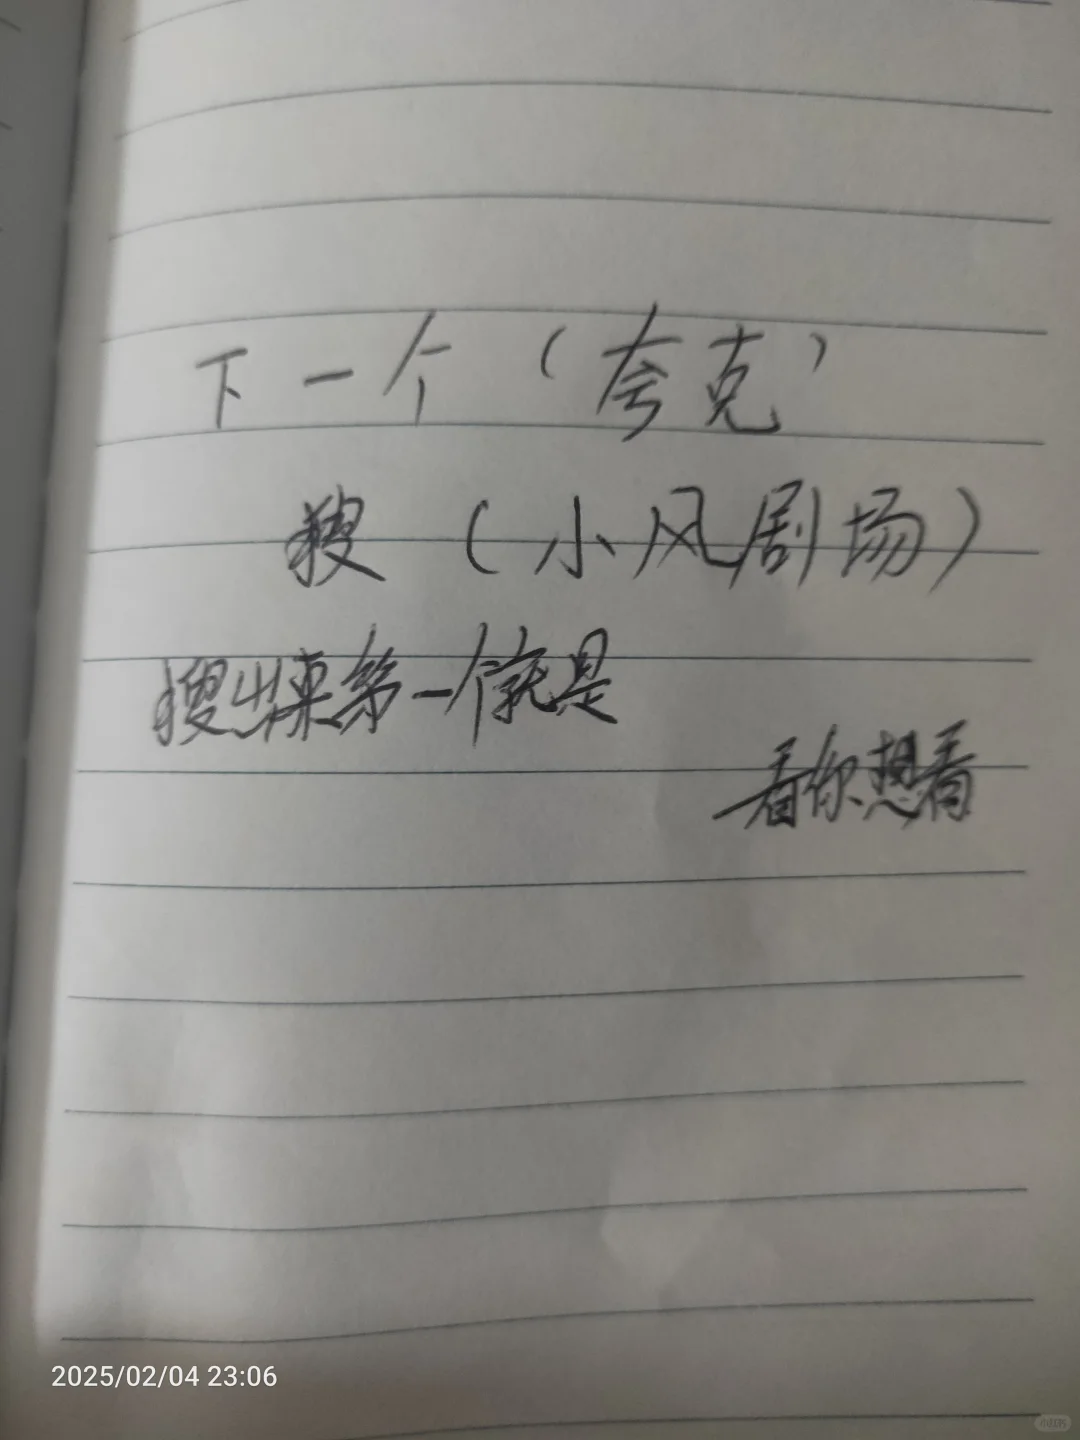 下一个（夸克）
搜（小风剧场）
搜出来第一个就是
看你想看
2025/02/04 23:06
小红书